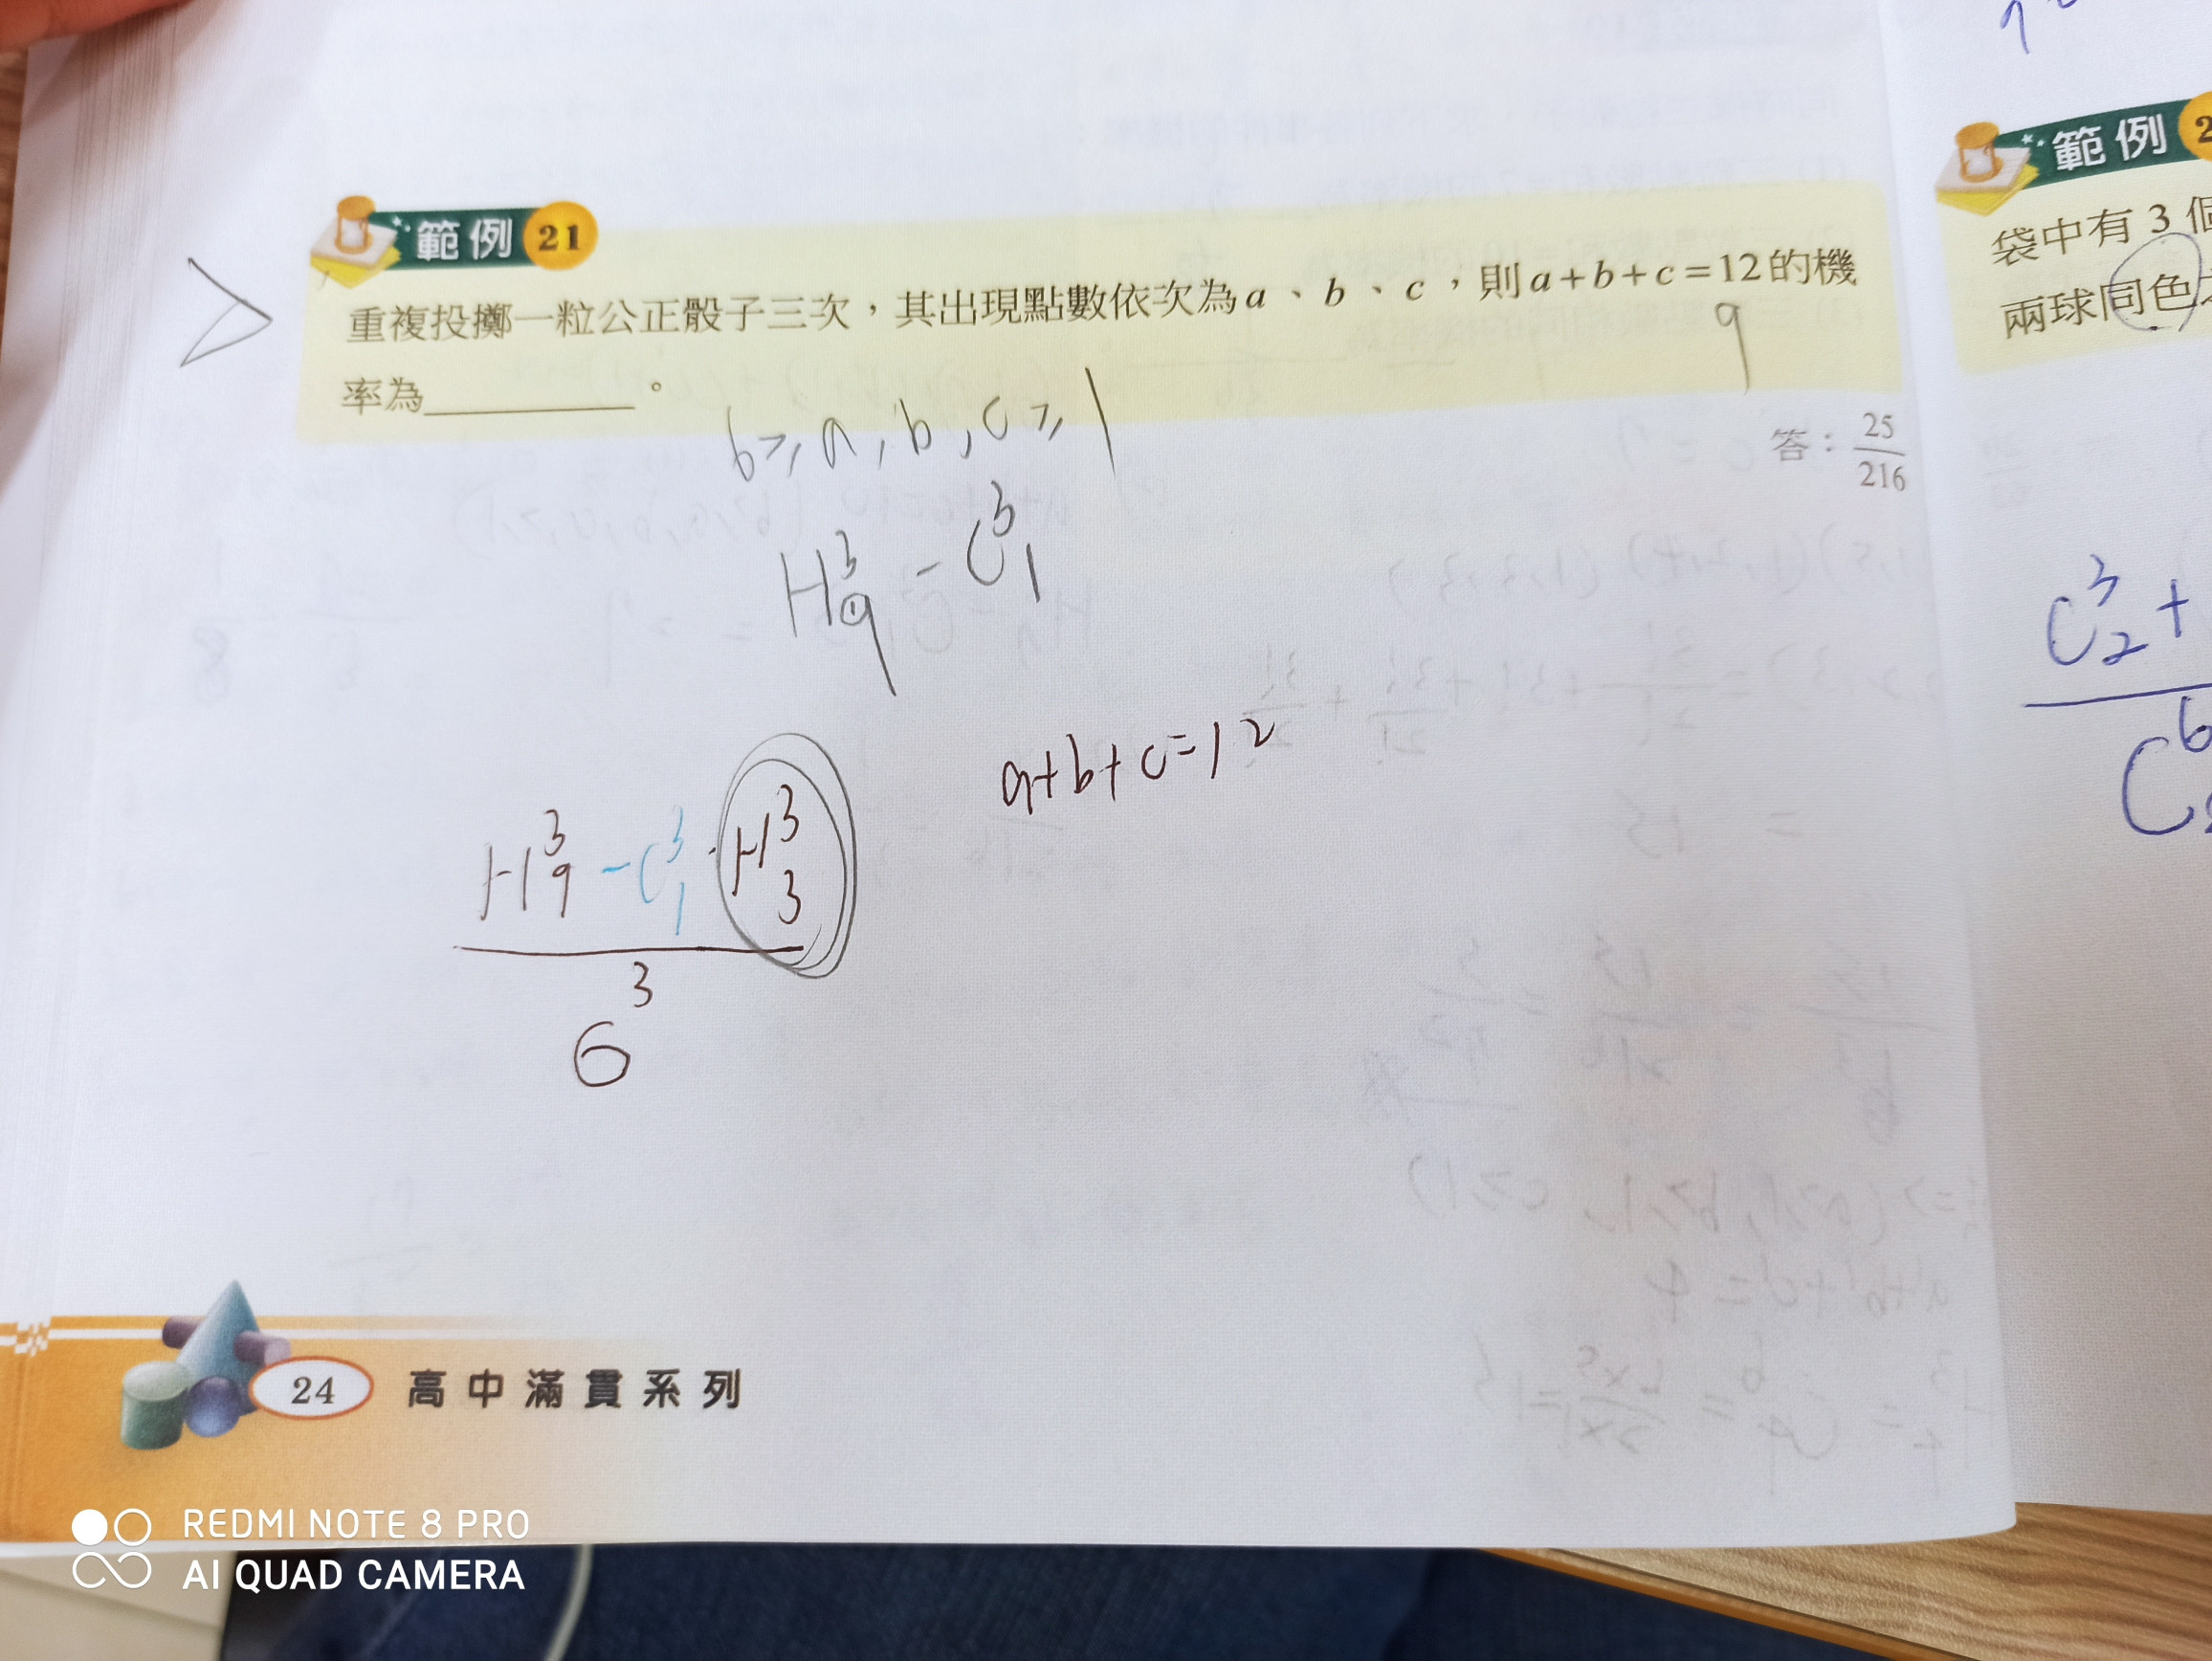 範例 21
重複投擲一粒公正骰子三次，其出現點數依次為 a、b、c，則 a+b+c=12 的機
9
率為________。
答：25/216
6≥a,b,c≥1
H³₉ - C³₁
a+b+c=12
H³₉ - C³₁ · H³₃
6³
24 高中滿貫系列
範例 2
袋中有 3 個
兩球同色
C³₂ +
REDMI NOTE 8 PRO
AI QUAD CAMERA